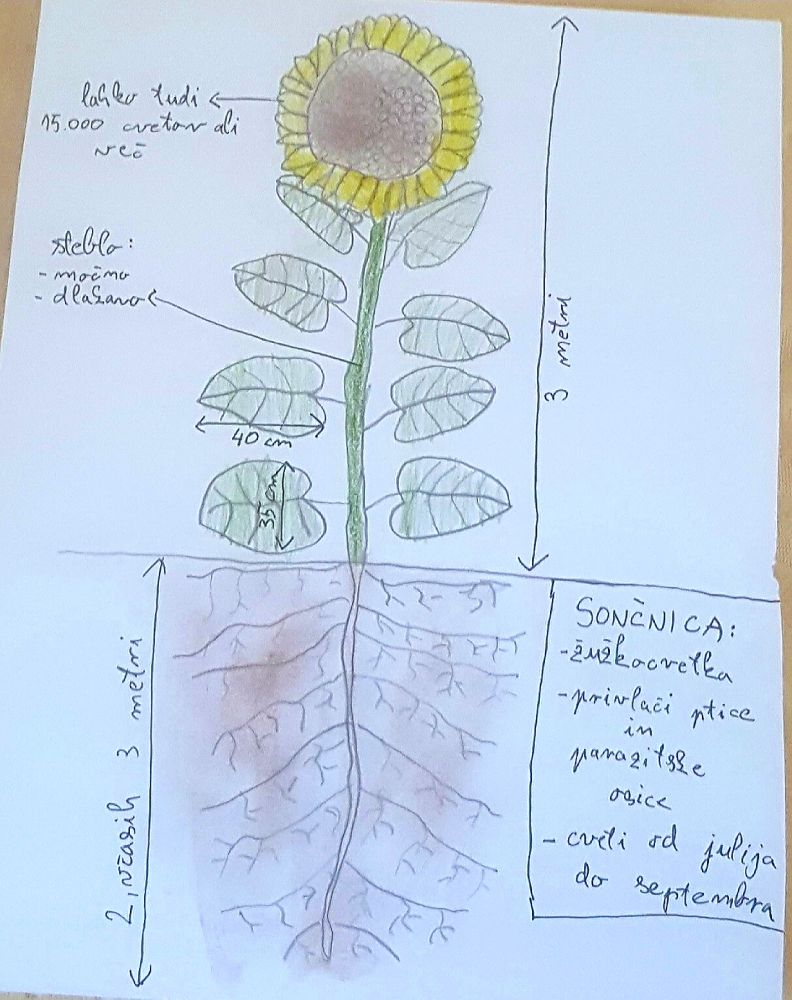 lahko tudi
15.000 cvetov ali
več
steblo:
- močno
- dlakavo
3 metri
40 cm
35 cm
2, včasih 3 metri
SONČNICA:
- žužkocvetka
- privlači ptice
in
parazitske
osice
- cveti od julija
do septembra